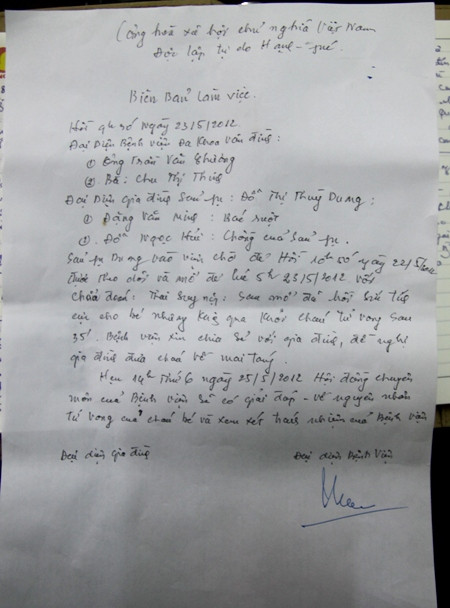 Cộng hoà xã hội chủ nghĩa Việt Nam
Độc lập tự do Hạnh - phúc
Biên Bản Làm việc.
Hồi 9h 50 Ngày 23/5/2012.
Đại Diện Bệnh viện Đa Khoa Vân đình:
① Ông Trần Văn Phương
② Bà: Chu Thị Thúy
Đại Diện gia đình Sản fụ: Đỗ Thị Thuỳ Dung:
① Đặng Văn Minh: Bác ruột
②. Đỗ Ngọc Hải: Chồng của Sản fụ.
Sản fụ Dung vào viện chờ đẻ Hồi 10h 50 ngày 22/5/2012
được theo dõi và mổ đẻ lúc 5h 23/5/2012 với
Chẩn đoán: Thai Suy: Sau mổ đã hồi sức tích
cực cho bé nhưng không qua khỏi cháu tử vong sau
35'. Bệnh viện xin chia sẻ với gia đình, đề nghị
gia đình đưa cháu về mai táng.
Hẹn 14h thứ 6 ngày 25/5/2012 Hội đồng chuyên
môn của Bệnh viện sẽ có giải đáp - về nguyên nhân
tử vong của cháu bé và xem xét trách nhiệm của Bệnh viện
Đại diện gia đình
Đại diện Bệnh Viện